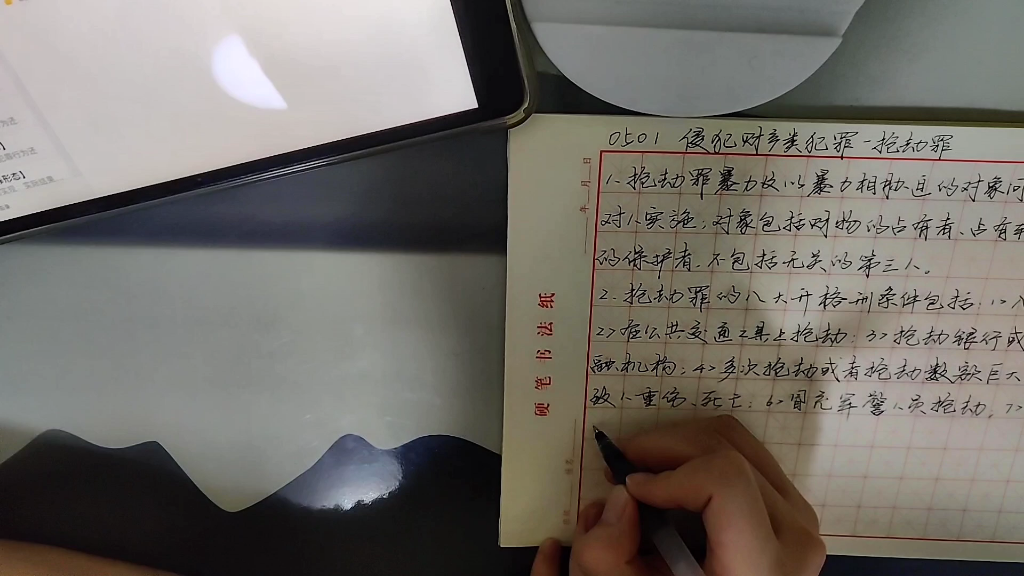 0501 侵犯财产类犯罪-抢劫罪
1.抢劫罪暴力及以暴力相胁迫的对象
对人实施;对象包括财物的占有者、占有
的保护者.不包括无关的第三人。
2.抢劫罪的八大升格刑条件包括:1>入
2>在公共交通工具上抢劫;3>抢劫银行或
融机构;4>多次抢劫或者抢劫数额巨大
致人重伤、死亡;6>冒充军警人员抢劫,7>
硬笔书法纸
年 月 日
形态】